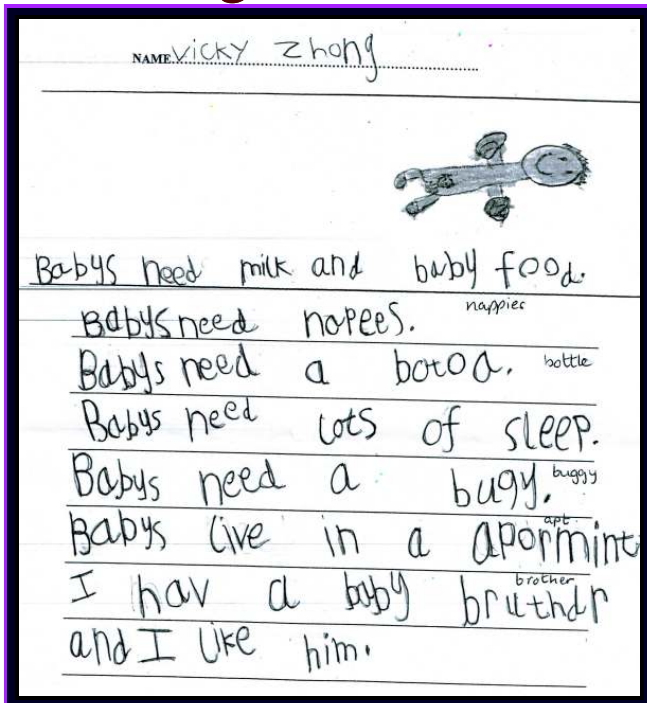 NAME Vicky Zhong
Babys need milk and baby food.
Babys need nopees. nappies
Babys need a botoa. bottle
Babys need lots of sleep.
Babys need a bugy. buggy
Babys live in a apormint apt.
I hav a baby bruthdr brother
and I like him.